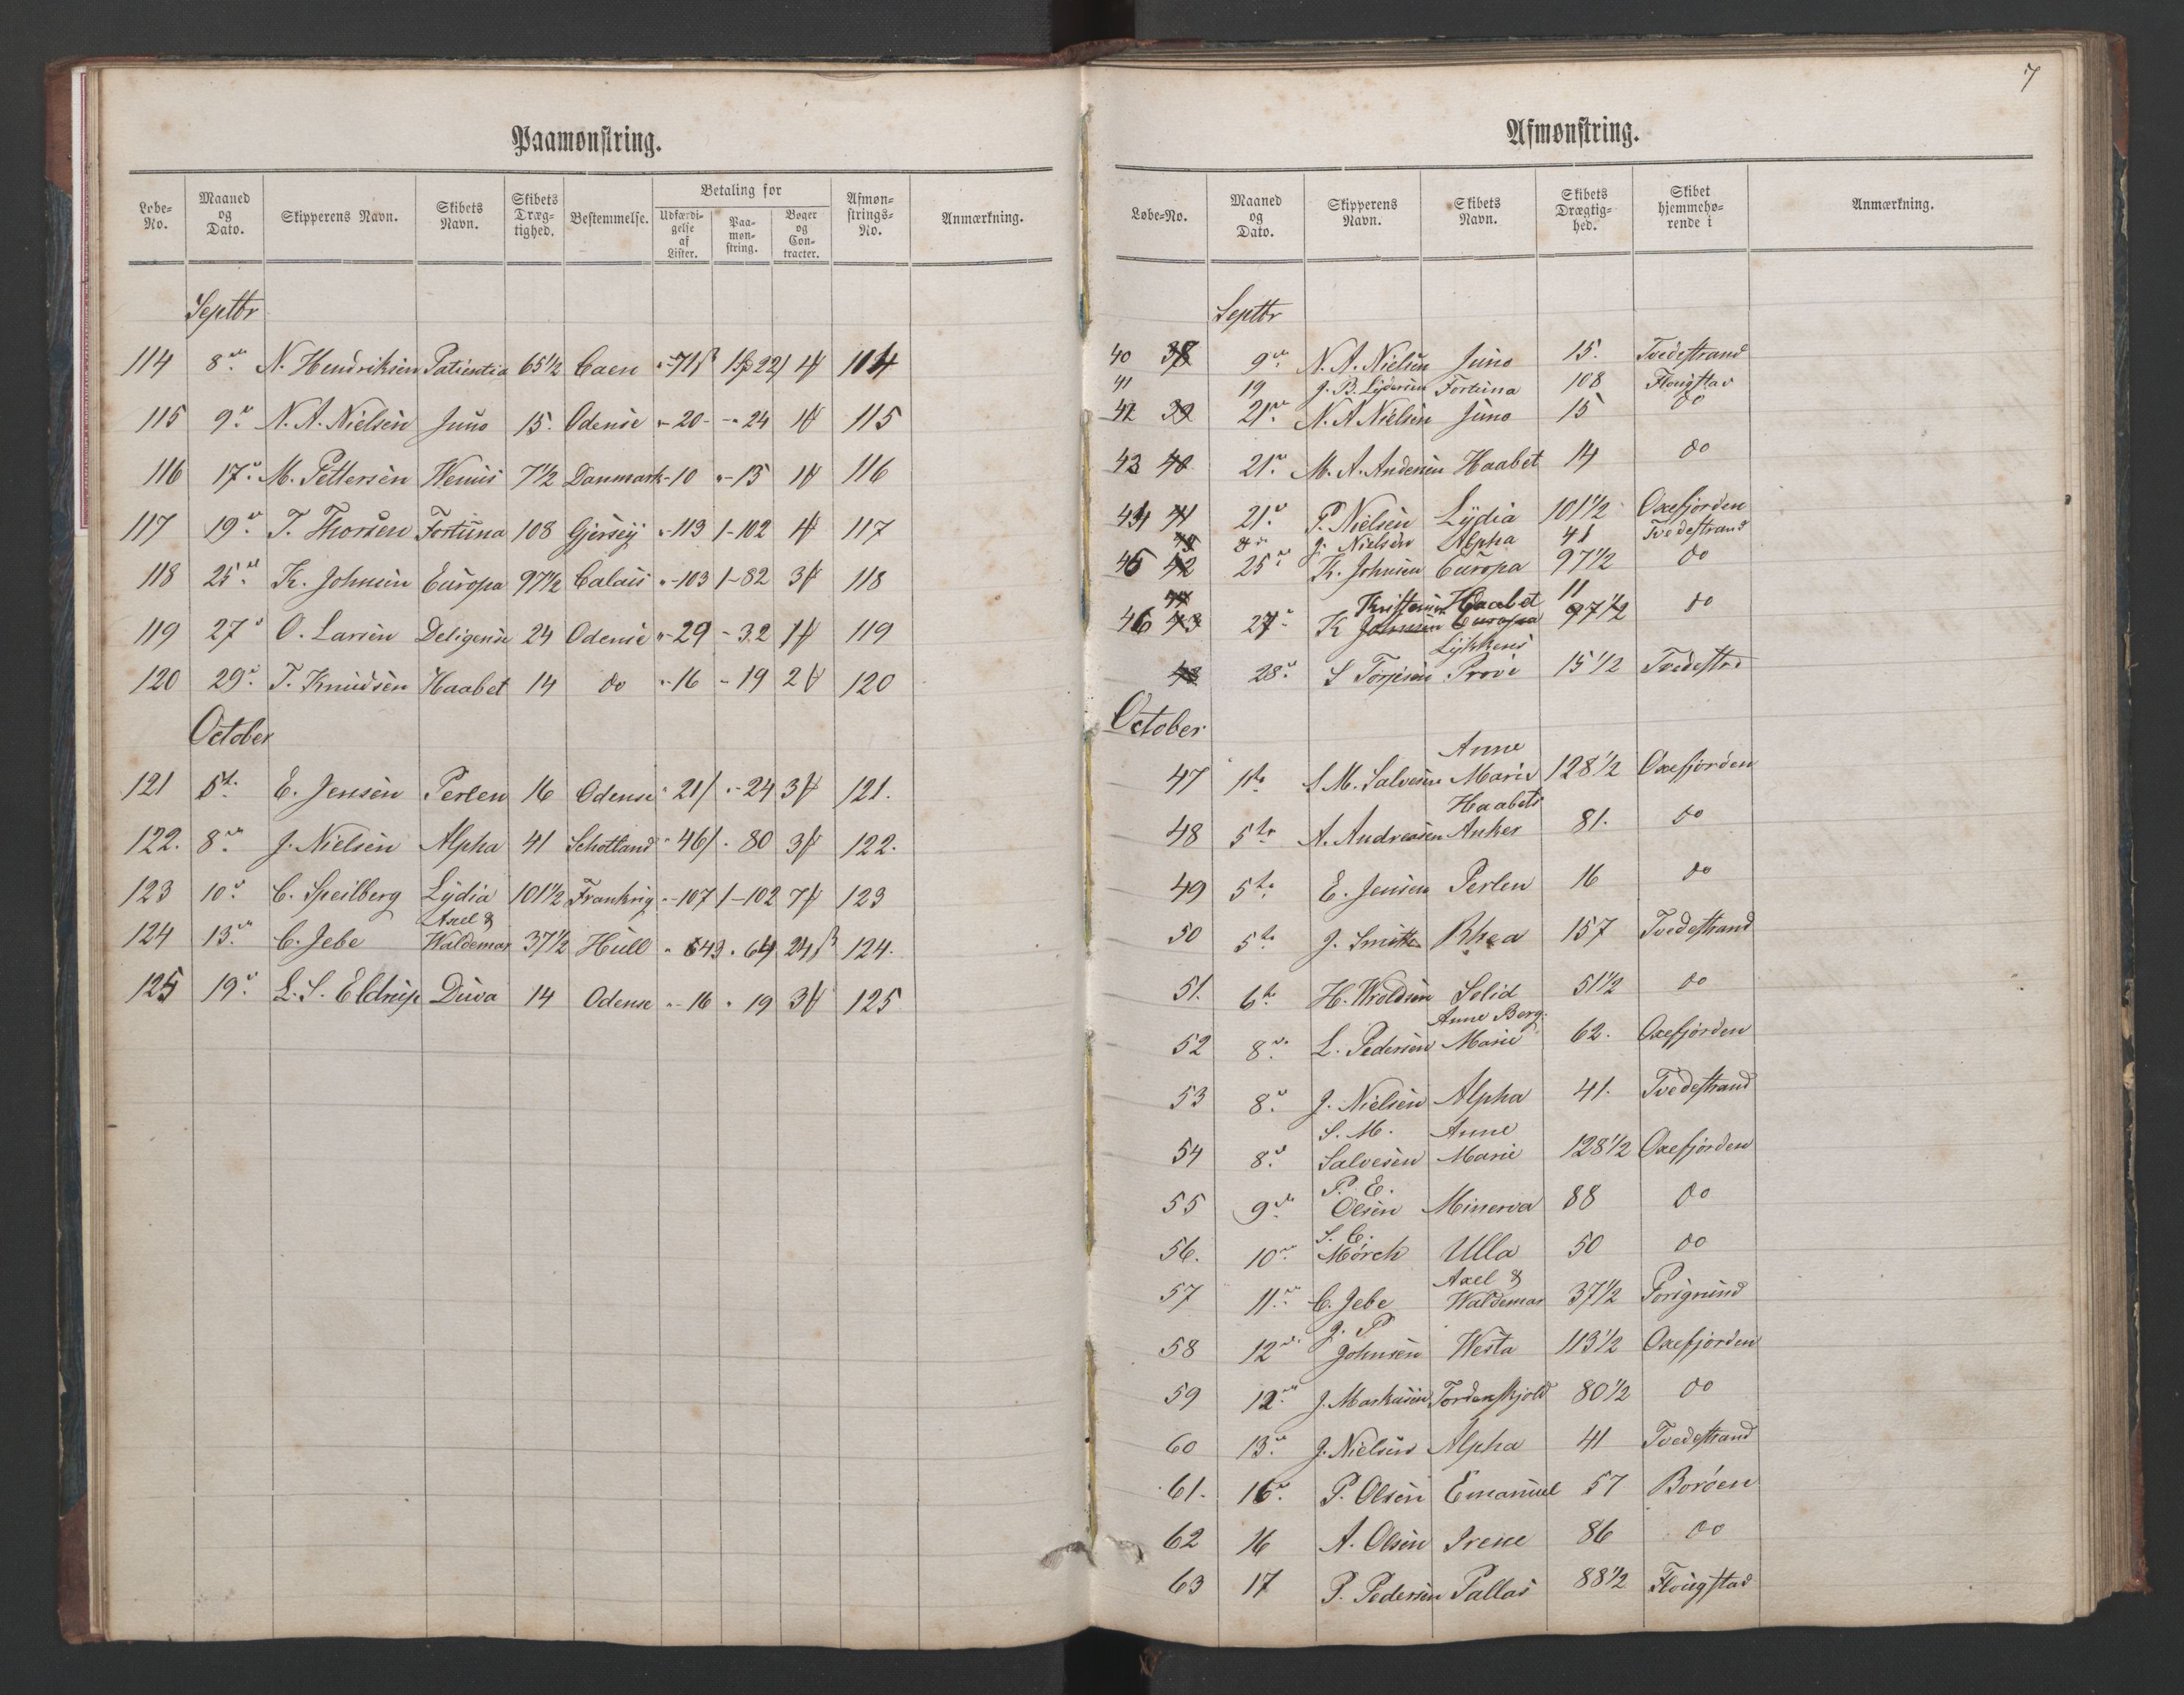 Paamønstring.
Løbe-No. Maaned og Dato. Skipperens Navn. Skibets Navn. Skibets Dræg-tighed. Bestemmelse. Betaling for Udfærdi-gelse af Lister. Paa-møn-string. Bøger og Con-tracter. Afmøn-strings-No. Anmærkning.
Septbr
114 8de N. Hendriksen Patientia 65 1/2 Caen 71 22 104
115 9de N. A. Nielsen Juno 15. Odense 20 24 115
116 17de M. Pettersen Wenus 7 1/2 Danmark 10 15 116
117 19de T. Thorsen Fortuna 108 Gjersey 113 1-102 117
118 25de K. Johnsen Europa 97 1/2 Calais 103 1-82 3 118
119 27de O. Larsen Deligense 24 Odense 29 32 119
120 29de T. Knudsen Haabet 14 do 16 19 2 120
October
121 5te E. Jensen Perlen 16 Odense 21 24 3 121.
122. 8de J. Nielsen Alpha 41 Schotland 46 80 3 122.
123 10de C. Speilberg Lydia 101 1/2 Frankrig 107 1-102 7 123
124 13de C. Jebe Axel & Waldemar 37 1/2 Hull 43 64 24 124.
125 19de L. S. Eldrup Duva 14 Odense 16 19 3 125
7
Afmønstring.
Løbe-No. Maaned og Dato. Skipperens Navn. Skibets Navn. Skibets Drægtig-hed. Skibet hjemmehø-rende i Anmærkning.
Septbr
40 9de N. A. Nielsen Juno 15. Tvedestrand
41 19 J. B. Lydersen Fortuna 108 Flougstad
42 39 21de N. A Nielsen Juno 15 do
43 40 21de M. A. Andersen Haabet 14 do
44 41 21de P. Nielsen Lydia 101 1/2 Oxefjorden
J. Nielsen Alpha 41 Tvedestrand
45 42 25de K. Johnsen Europa 97 1/2 do
Kristensen Haabet 11
46 43 27de K Johnsen Europa 97 1/2 do
28de S Torjesen Lykkens Prøve 15 1/2 Tvedestrd
October
47 1te S. M. Salvesen Anne Marie 128 1/2 Oxefjorden
48 5te A. Andreasen Haabets Anker 81. do
49 5te E. Jensen Perlen 16 do
50 5te J. Smith Rhea 157 Tvedestrand
51. 6te H. Woldsen Solid 51 1/2 do
52 8de L. Pedersen Anne Berg. Marie 62. Oxefjorden
53 8de J. Nielsen Alpha 41. Tvedestrand
54 8de S. M. Salvesen Anne Marie 128 1/2 Oxefjorden
55 9de P. E. Olsen Minerva 88 do
56. 10de S. C. Mörch Ulla 50 do
57 11te C. Jebe Axel & Waldemar 37 1/2 Porsgrund
58 12te J. P Johnsen Westa 113 1/2 Oxefjorden
59 12te J. Markusen Tordenskjold 80 1/2 do
60 13de J. Nielsen Alpha 41 Tvedestrand
61. 16de P. Olsen Emanuel 57 Borøen
62 16 A. Olsen Irene 86 do
63 17 P. Pedersen Pallas 88 1/2 Flougstad